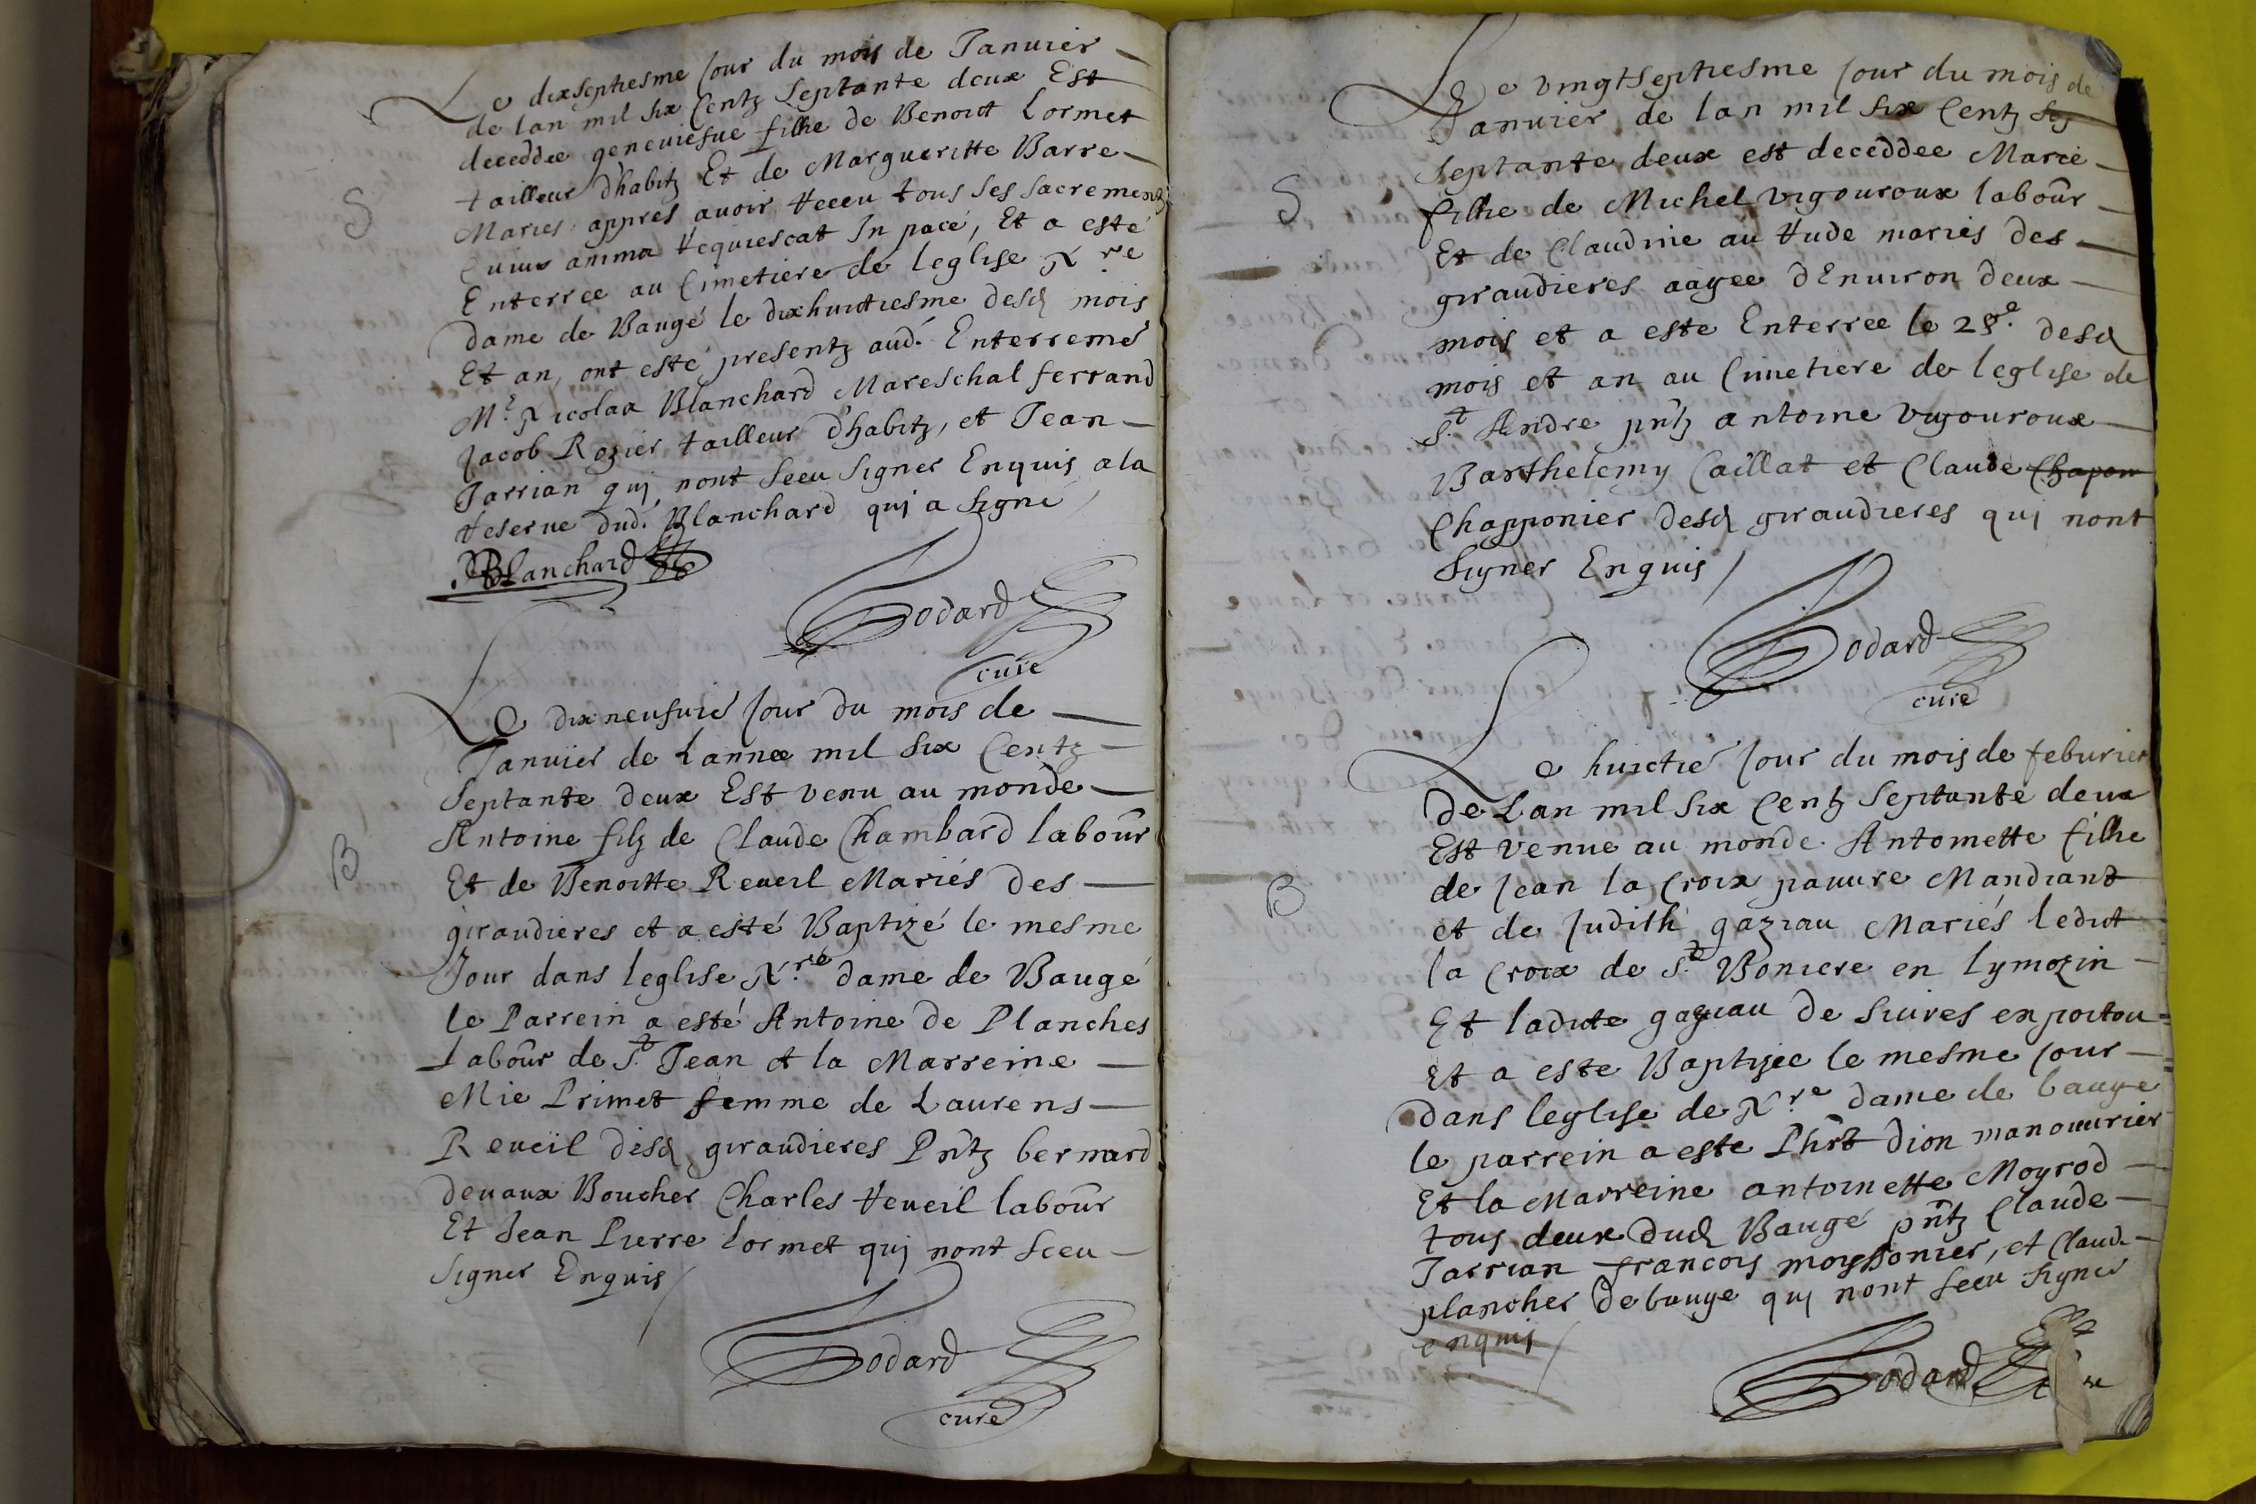 Le dixseptiesme Jour du mois de Januier
de lan mil six Centz Septante deux Est
deceddee geneuiesue filhe de Benoist Lormet
tailleur dhabitz Et de Margueritte Barre
Maries appres auoir Receu tous ses sacrementz
S
Cuius anima Requiescat In pace, Et a esté
Enterrée au Cimetiere de leglise Nre
dame de Baugé le dixhuictiesme desd mois
Et an, ont esté presentz aud. Enterremẽ
Me Nicolas Blanchard Mareschal ferrand
Jacob Rozier tailleur d'habitz, et Jean
Jarrian qui nont sceu Signer Enquis a la
Reserue dud. Blanchard qui a signé
NBlanchard
Godard
curé
Le dix neufuiẽ Jour du mois de
Januier de Lannee mil six Centz
Septante deux Est venu au monde
Antoine filz de Claude Chambard labour
B
Et de Benoitte Reueil Mariés des
giraudieres et a esté Baptizé le mesme
Jour dans leglise Nre dame de Baugé
le Parrein a esté Antoine de Planches
Labour de St Jean et la Marreine
Mie Primet femme de Laurens
Reueil desd giraudieres Pntz bernard
deuaux Boucher Charles Reueil labour
Et Jean Pierre Lormet qui nont sceu
Signer Enquis
Godard
curé
Le vingtseptiesme Jour du mois de
Januier de lan mil six Centz sep
Septante deux est deceddee Marie
S
filhe de Michel vigouroux labour
Et de Claudine au Rude mariés des
giraudieres aagee dEnuiron deux
mois et a este Enterree le 28e desd
mois et an au Cimetiere de leglise de
St Andre pntz antoine vigouroux
Barthelemy Caillat et Claude Chapon
Chapponier desd giraudieres qui nont
Signer Enquis
Godard
curé
Le huictiẽ Jour du mois de feburier
de Lan mil six Centz Septante deux
Est venue au monde Antoinette filhe
B
de Jean la Croix pauure Mandiant
et de Judith gaziau Mariés ledit
la Croix de St Boniere en Lymozin
Et ladite gaziau de Siures en poitou
Et a este Baptizee le mesme Jour
dans leglise de Nre dame de bauge
le parrein a este Phrt dion manouurier
Et la Marreine antoinette Moyrod
tous deux dud Baugé pntz Claude
Jarrian francois moyssonier, et Claud.
plancher de bauge qui nont sceu signer
enquis
Godard